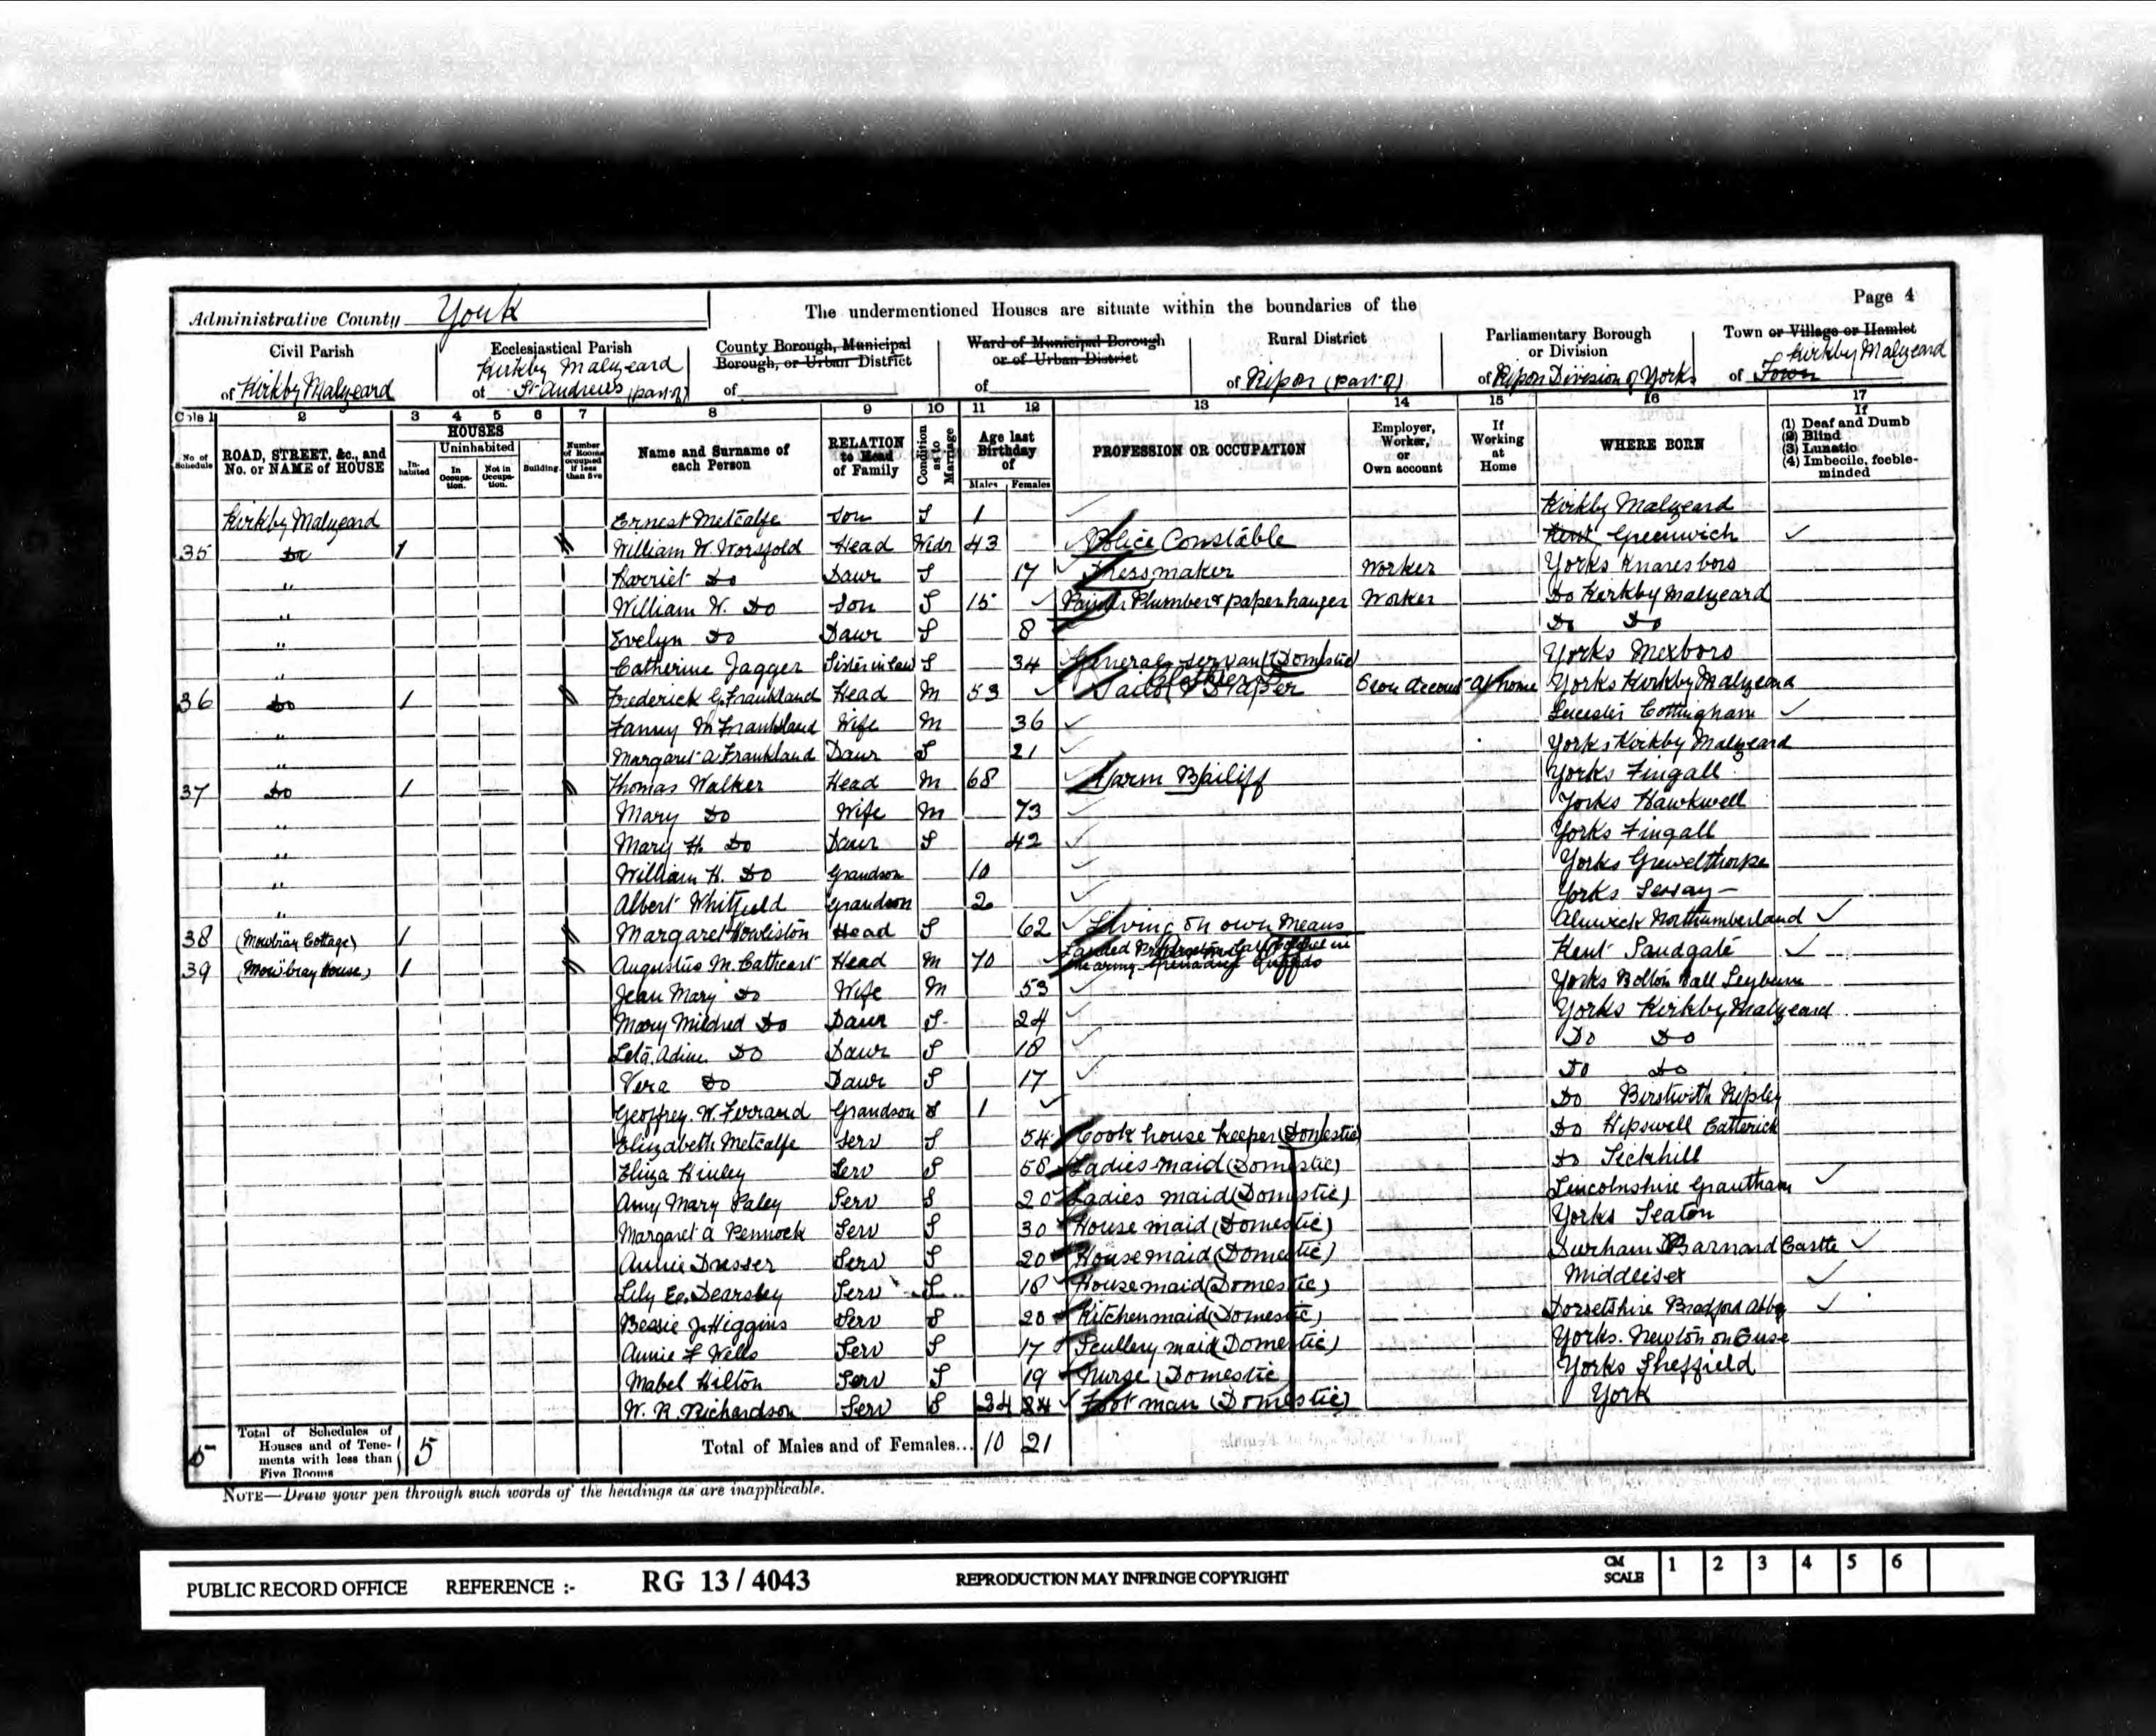 Page 4
Administrative County York
The undermentioned Houses are situate within the boundaries of the
Civil Parish
of Kirkby Malzeard
Ecclesiastical Parish
Kirkby Malzeard
of St Andrews (part of)
County Borough, Municipal
Borough, or Urban District
of
Ward of Municipal Borough
or of Urban District
of
Rural District
of Ripon (part of)
Parliamentary Borough
or Division
of Ripon Division of Yorks
Town or Village or Hamlet
Kirkby Malzeard
of Town
Cols 1 2 3 4 5 6 7 8 9 10 11 12 13 14 15 16 17
No. of Schedule
ROAD, STREET, &c., and No. or NAME of HOUSE
HOUSES
Inhabited
Uninhabited
In Occupation.
Not in Occupation.
Building.
Number of Rooms occupied if less than five
Name and Surname of each Person
RELATION to Head of Family
Condition as to Marriage
Age last Birthday of
Males Females
PROFESSION OR OCCUPATION
Employer, Worker, or Own account
If Working at Home
WHERE BORN
If
(1) Deaf and Dumb
(2) Blind
(3) Lunatic
(4) Imbecile, feeble-minded
Kirkby Malzeard Ernest Metcalfe Son S 1 Kirkby Malzeard
35 Do 1 William W. Worsfold Head Widr 43 Police Constable Kent Greenwich
" Harriet Do Daur S 17 Dressmaker Worker Yorks Knaresboro
" William W. Do Son S 15 Painter Plumber & paperhanger Worker Do Kirkby Malzeard
" Evelyn Do Daur S 8 Do Do
" Catherine Jagger Sister in law S 34 General servant (Domestic) Yorks Mexboro
36 Do 1 Frederick G. Frankland Head M 53 Tailor Clothier & Draper Own Account At home Yorks Kirkby Malzeard
" Fanny M Frankland Wife M 36 Leicester Cottingham
" Margaret A Frankland Daur S 21 Yorks Kirkby Malzeard
37 Do 1 Thomas Walker Head M 68 Farm Bailiff Yorks Fingall
" Mary Do Wife M 73 Yorks Hawkwell
" Mary H. Do Daur S 42 Yorks Fingall
" William H. Do Grandson 10 Yorks Grewelthorpe
" Albert Whitfield Grandson 2 Yorks Sessay
38 (Mowbray Cottage) 1 Margaret Howliston Head S 62 Living on own Means Alnwick Northumberland
39 (Mowbray House) 1 Augustus M. Cathcart Head M 70 Landed Proprietor in the army Grenadier Guards Kent Sandgate
Jean Mary Do Wife M 53 Yorks Bolton Hall Leyburn
Mary Mildred Do Daur S 24 Yorks Kirkby Malzeard
Do Daur S 18 Do Do
Vera Do Daur S 17 Do Do
Geoffrey. W. Ferrand Grandson S 1 Do Birstwith Ripley
Elizabeth Metcalfe Serv S 54 Cook house keeper (Domestic) Do Hipswell Catterick
Eliza Serv S 58 Ladies maid (Domestic) Do
Amy Mary Paley Serv S 20 Ladies maid (Domestic) Lincolnshire Grantham
Margaret A Pennock Serv S 30 House maid (Domestic) Yorks Seaton
Annie Dresser Serv S 20 House maid (Domestic) Durham Barnard Castle
Lily Dearsley Serv S 18 House maid (Domestic) Middlesex
Bessie J. Higgins Serv S 20 Kitchen maid (Domestic) Dorsetshire Bradford Abby
Annie F Wells Serv S 17 Scullery maid (Domestic) Yorks. Newton on Ouse
Mabel Hilton Serv S 19 Nurse (Domestic) Yorks Sheffield
W. R. Richardson Serv S 24 Foot man (Domestic) York
5 Total of Schedules of Houses and of Tenements with less than Five Rooms 5 Total of Males and of Females... 10 21
NOTE—Draw your pen through such words of the headings as are inapplicable.
PUBLIC RECORD OFFICE REFERENCE :- RG 13 / 4043 REPRODUCTION MAY INFRINGE COPYRIGHT CM SCALE 1 2 3 4 5 6